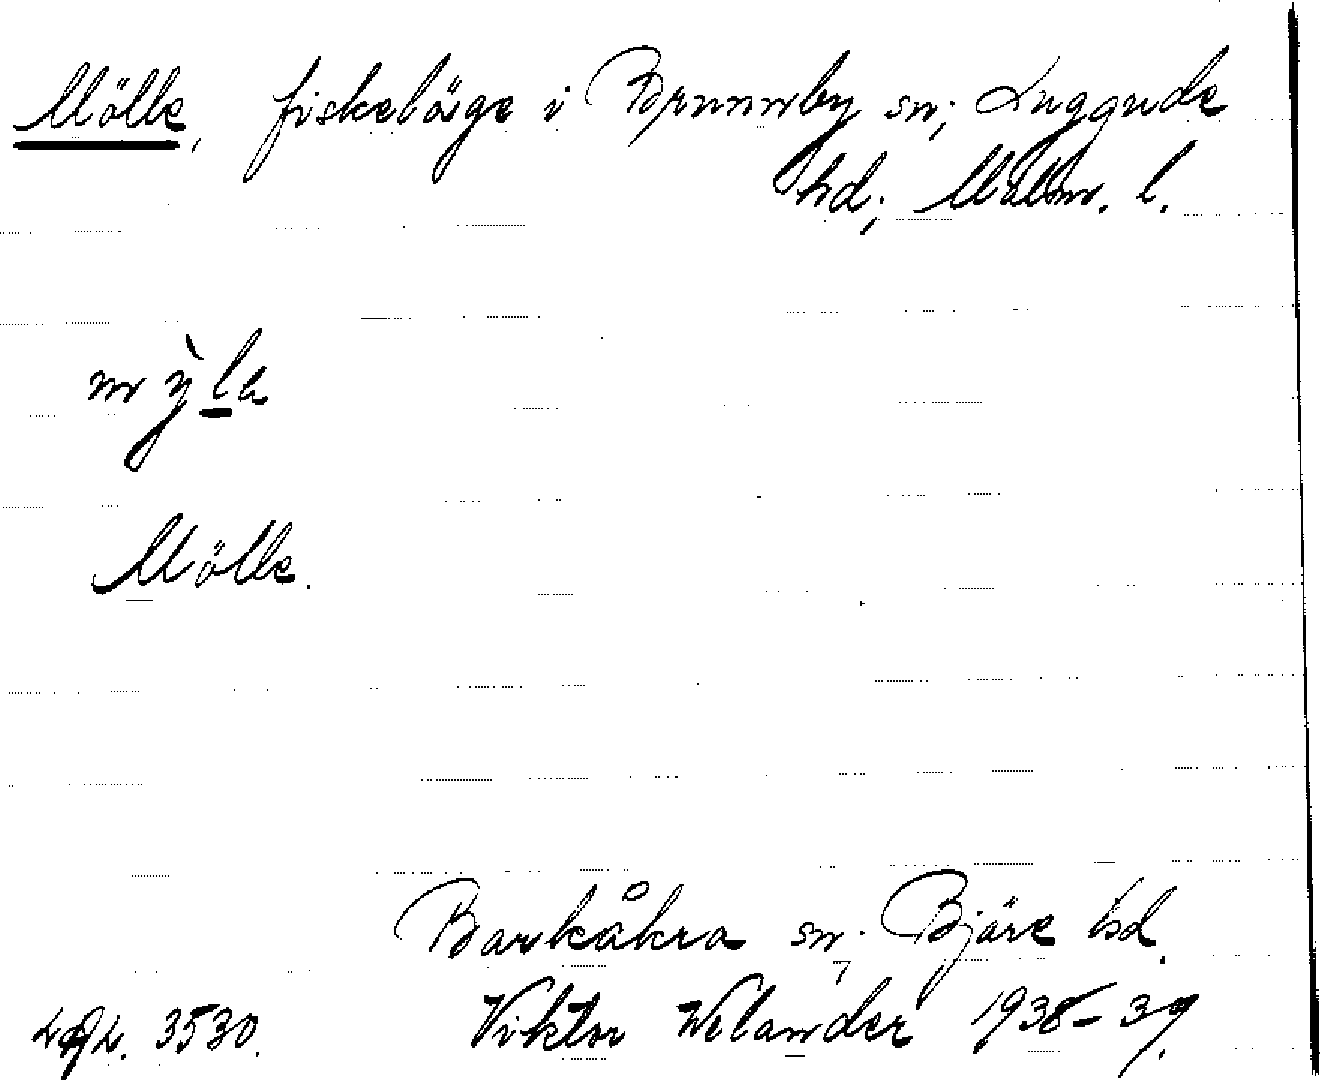 Mölle, fiskeläge i Brunnby sn; Luggude
hd; Malm. l.
Mölle.
Barkåkra sn. Bjäre hd.
3530. Viktor Welander 1938-39.